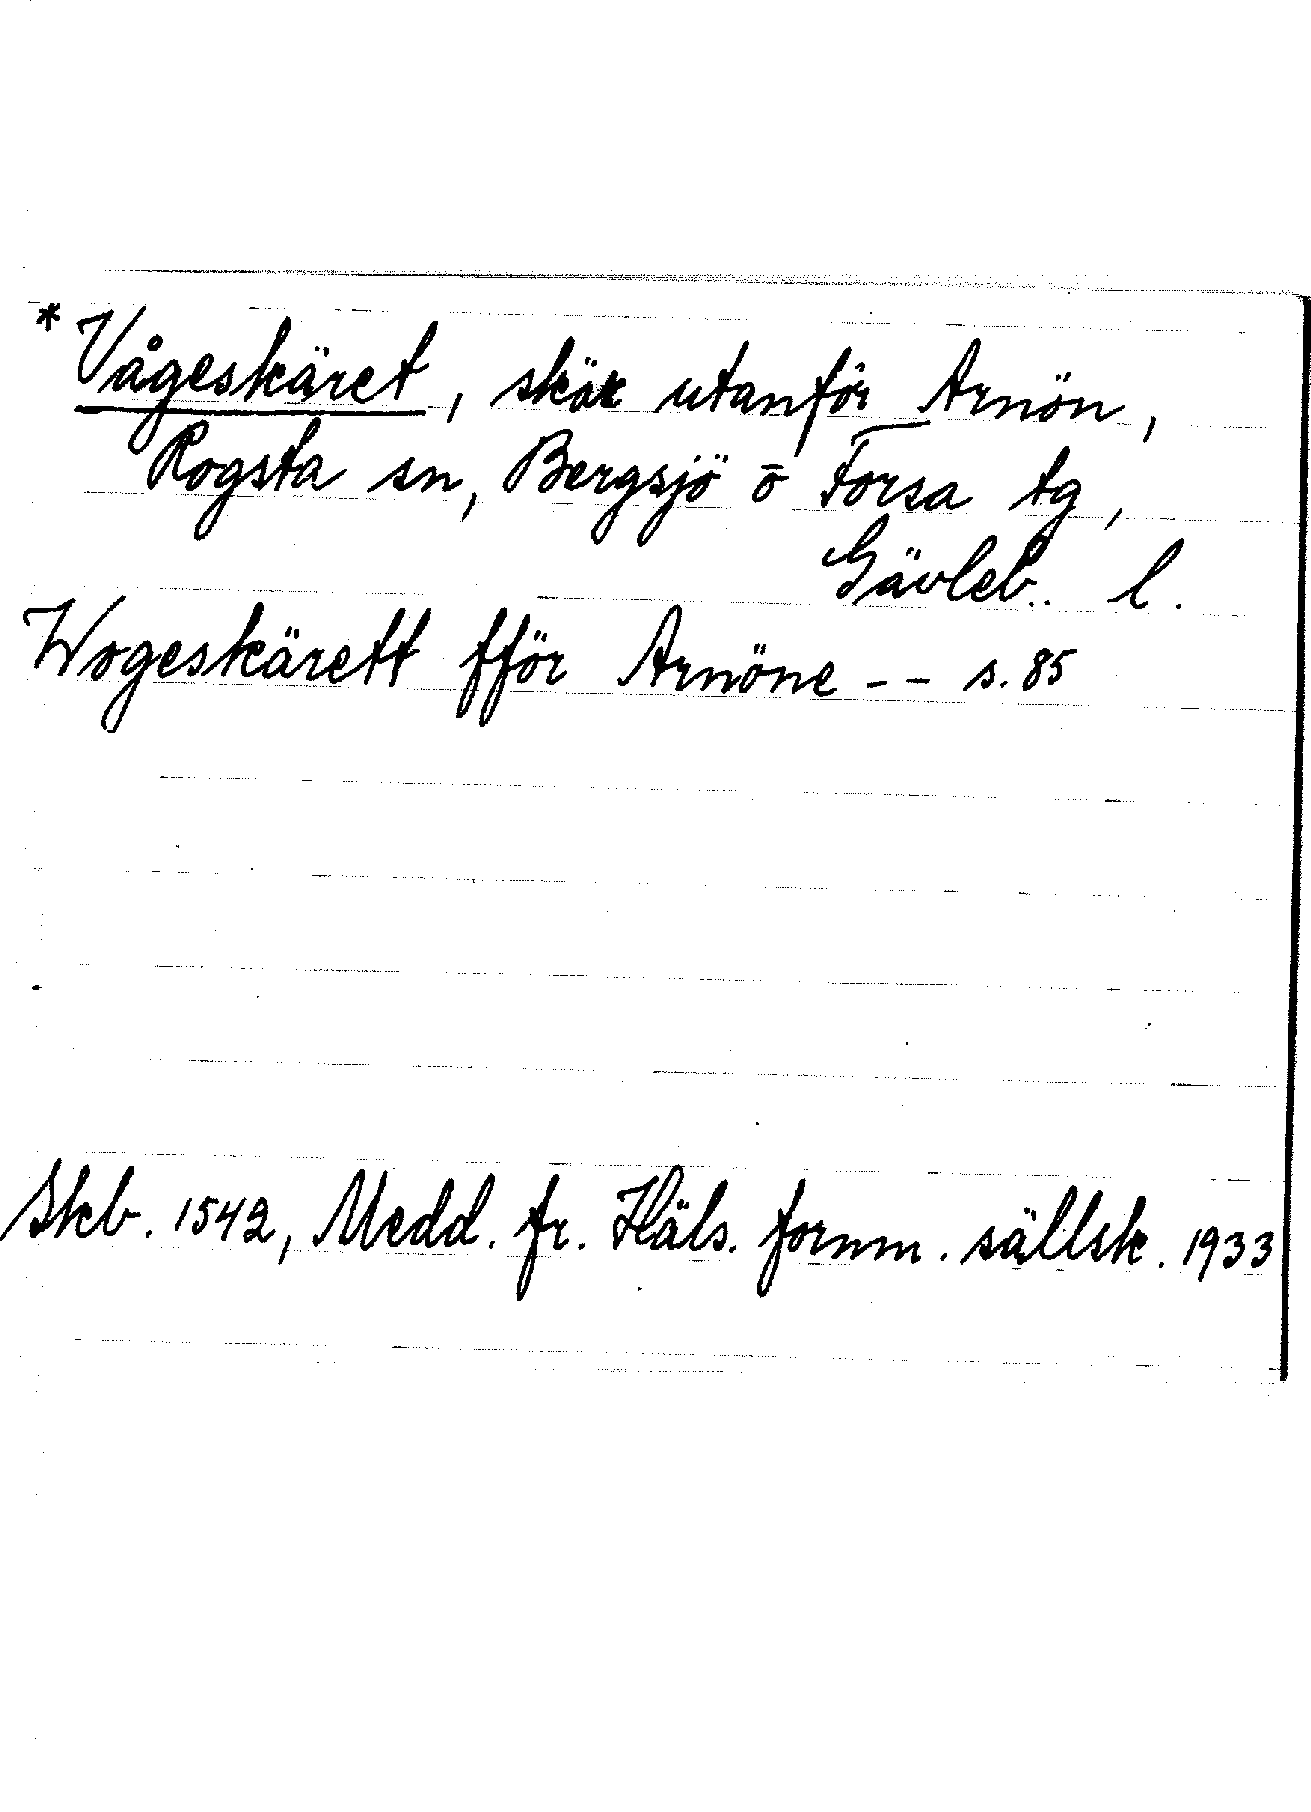 *Vågeskäret, skär utanför Arnön,
Rogsta sn, Bergsjö o Forsa tg,
Gävleb. l.
Wogeskärett fför Arnöne -- s. 85
Skb. 1542, Medd. fr. Häls. fornm. sällsk. 1933